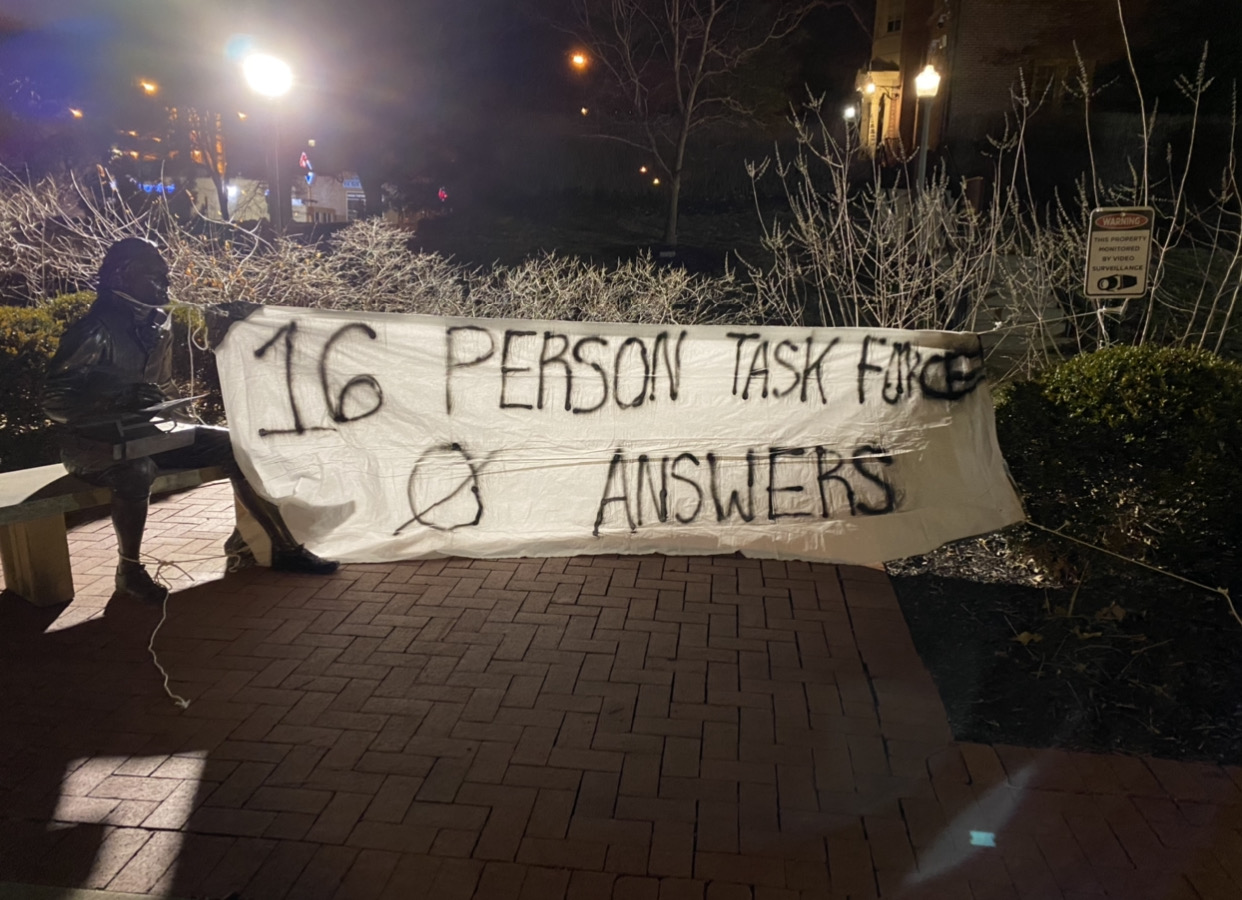 16 PERSON TASK FORCE
0 ANSWERS
WARNING
THIS PROPERTY
MONITORED
BY VIDEO
SURVEILLANCE